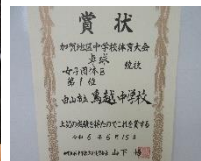 賞状
加賀地区中学校体育大会
卓球 競技
女子団体の部
第1位
白山市立 鳥越中学校
上記の成績を得たのでこれを賞する
令和5年6月15日
山下